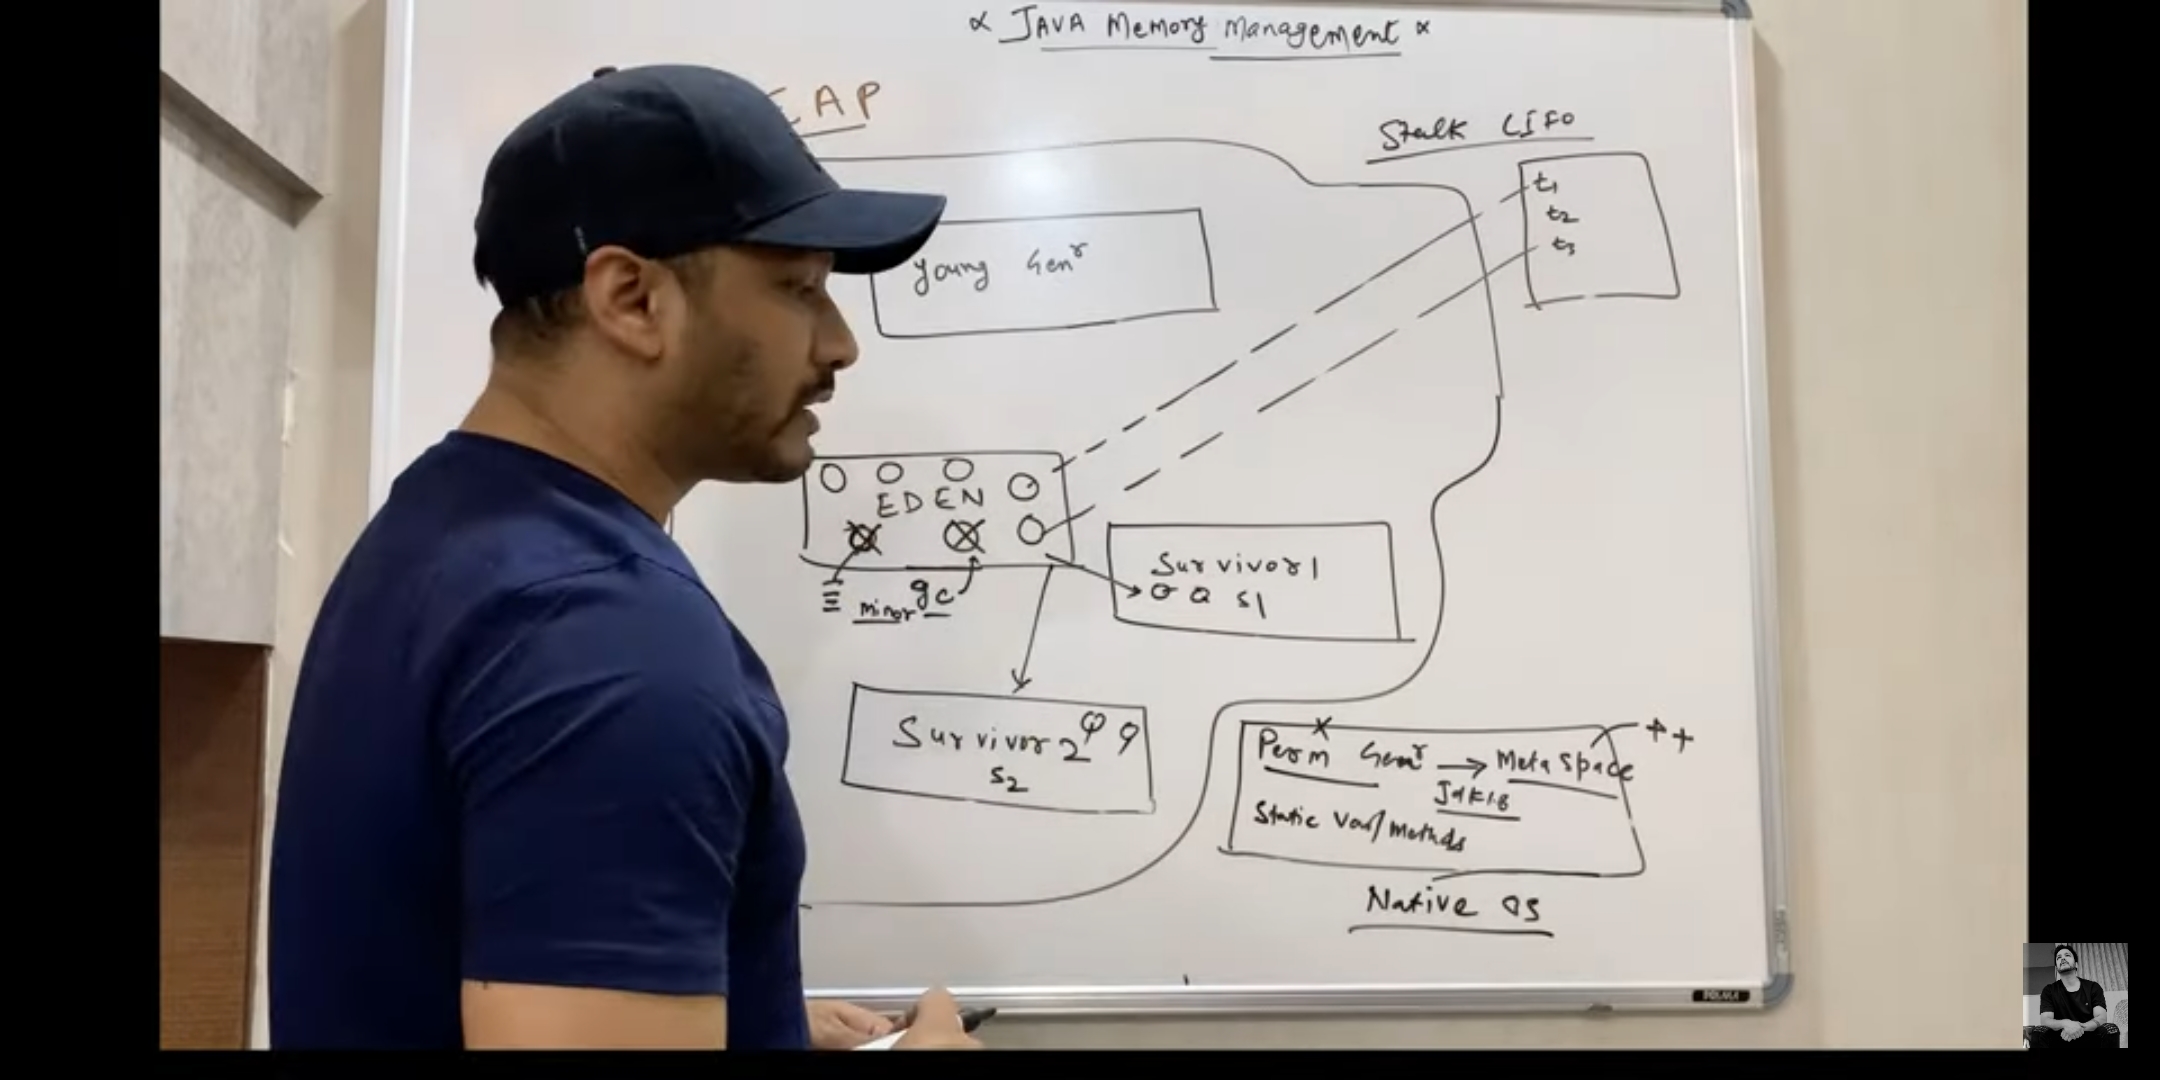 ∝ JAVA Memory Management ∝
EAP
Stalk LIFO
t1
t2
t3
Young Genr
EDEN
minor gc
Survivor 1
S1
Survivor 2
S2
Perm Genr → Meta Space ++
Jdk1.8
Static Var/Methds
Native OS